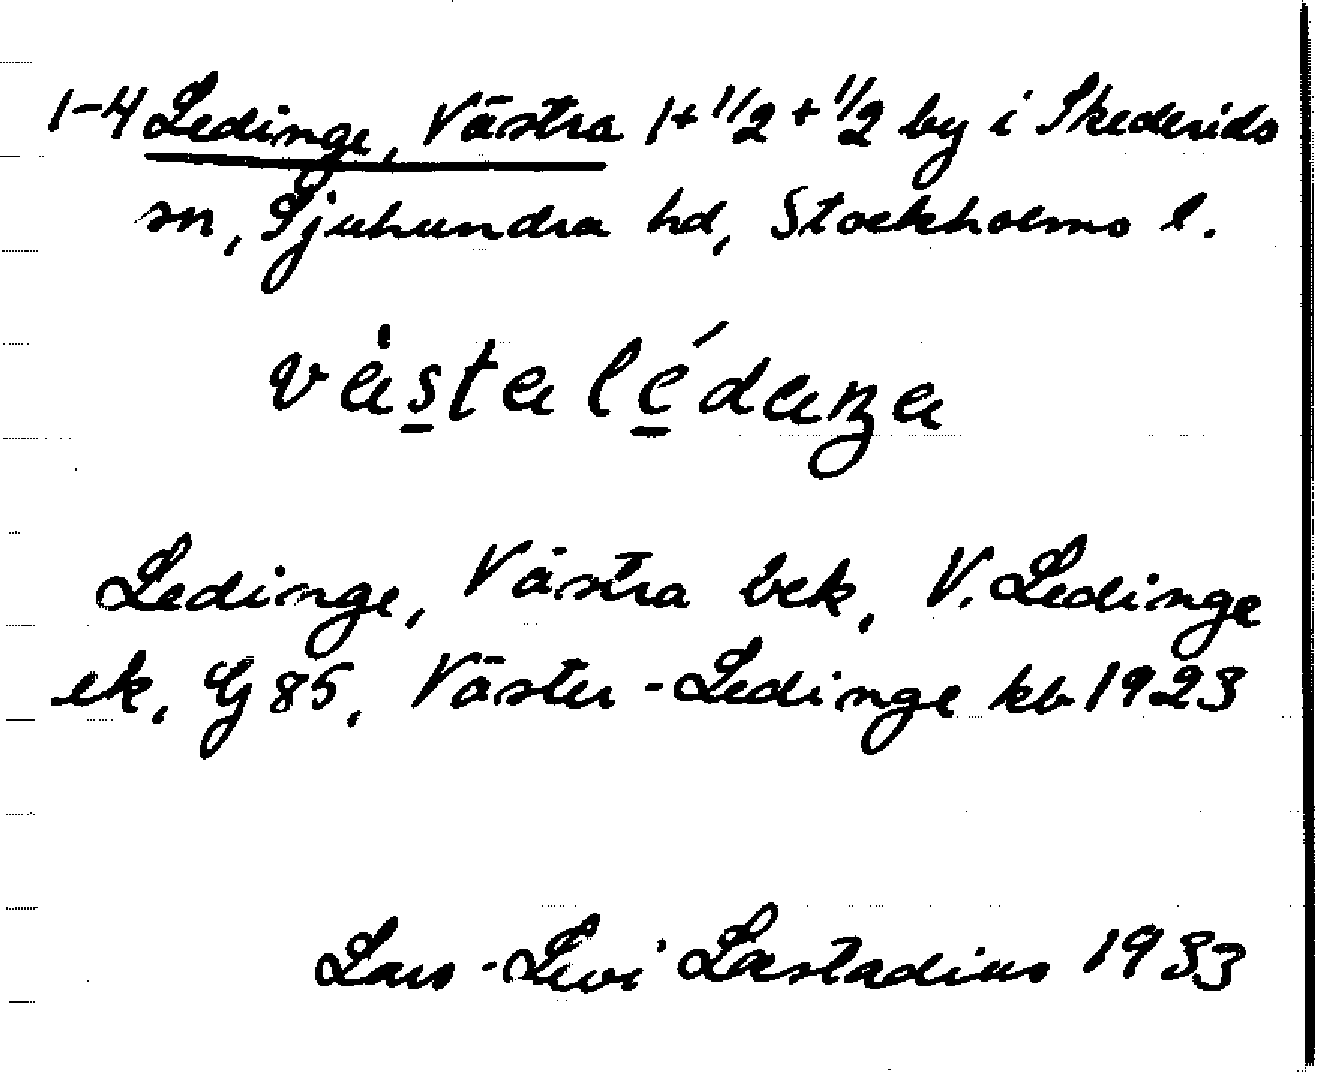 1-4 Ledinge, Västra 1+1/2+1/2 by i Skederids
sn, Sjuhundra hd, Stockholms l.
västa lédaŋa
Ledinge, Västra bek, V. Ledinge
ek, Gj 85, Väster-Ledinge kb 1923
Lars-Levi Læstadius 1933